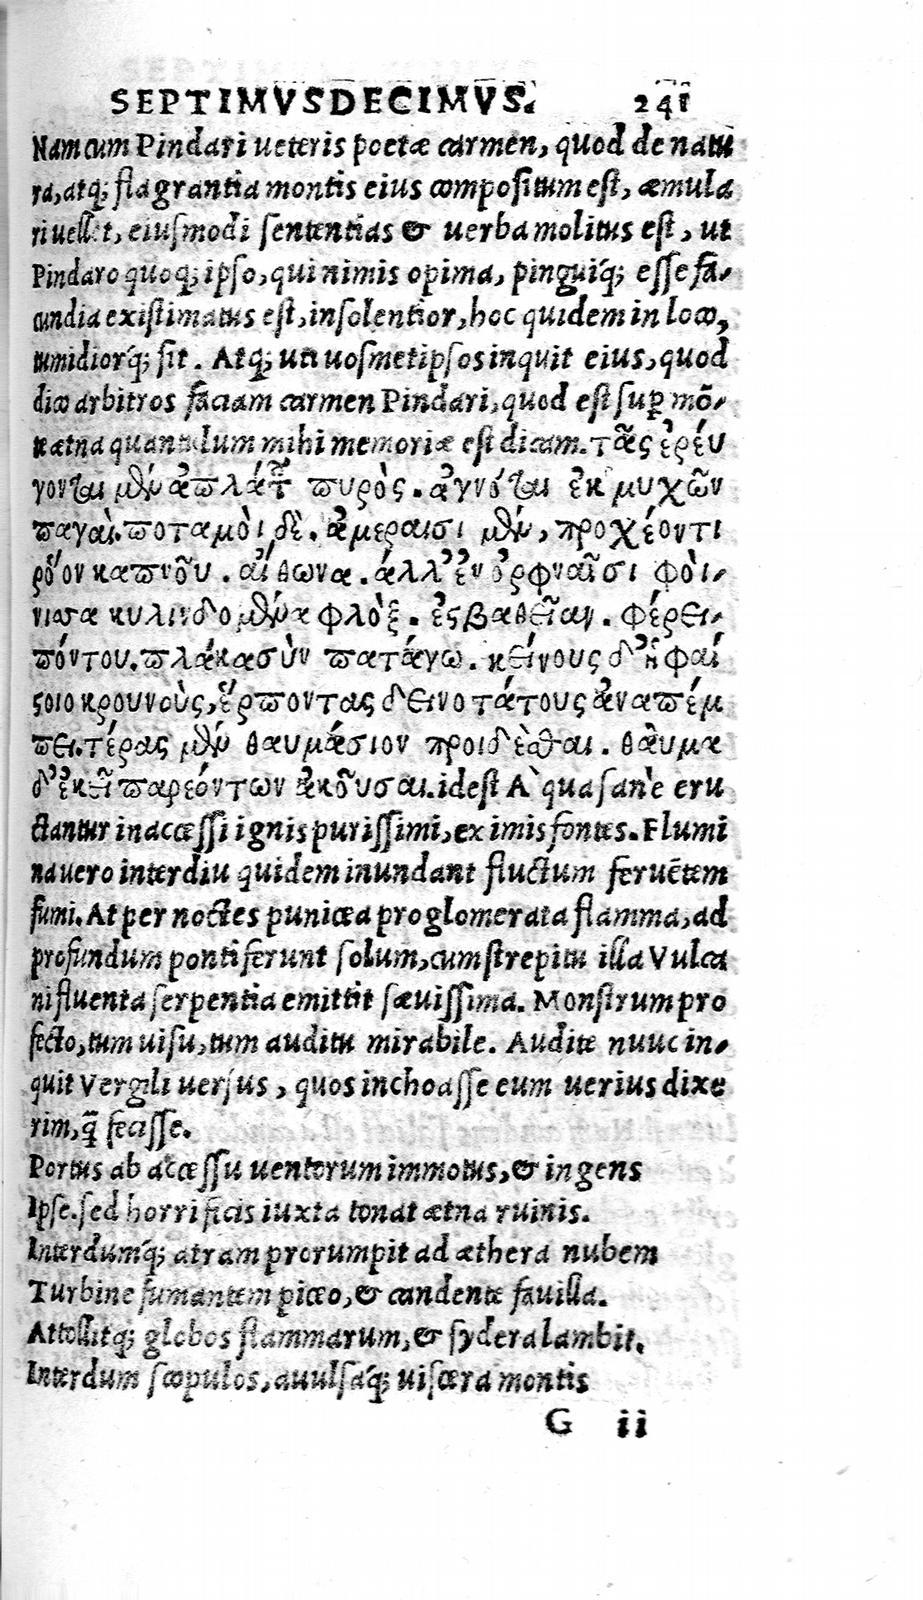 SEPTIMVSDECIMVS. 241
Nam cum Pindari ueteris poetæ carmen, quod de natu
ra, atq; flagrantia montis eius compositum est, æmula
ri uellet, eiusmodi sententias & uerba molitus est, ut
Pindaro quoq; ipso, qui nimis opima, pinguiq́; esse fa-
cundia existimatus est, insolentior, hoc quidem in loco,
tumidiorq́; sit. Atq; uti uosmetipsos inquit eius, quod
dico arbitros faciam carmen Pindari, quod est sup mõ-
te ætna quantulum mihi memoriæ est dicam. τᾶς ἐρέυ
γονται μὲν ἀπλάτȣ πυρὸς. ἁγνόται ἐκ μυχῶν
παγαὶ. ποταμὸι δὲ. ἁμεραισι μὲν, προχέοντι
ῥόον καπνοῦ. αἴθωνα. ἀλλ᾽ ἐν ὀρφναῖσι φὸι-
νισσα κυλινδομένα φλὸξ. ἐς βαθεῖαν. φέρει-
πόντου. πλάκα σὺν πατάγω. κείνους δ᾽ ἡφαί
ςοιο κρουνοὺς, ἕρποντας δεινοτάτους ἀναπέμ
πει. τέρας μὲν θαυμάσιον προιδέσθαι. θαῦμα
δ᾽ ἐκεῖ παρεόντων ἀκοῦσαι. idest A` qua sane eru
ctantur inaccessi ignis purissimi, ex imis fontes. Flumi
na uero interdiu quidem inundant fluctum feruẽtem
fumi. At per noctes punicea proglomerata flamma, ad
profundum ponti ferunt solum, cum strepitu illa Vulca
ni fluenta serpentia emittit sæuissima. Monstrum pro
fecto, tum uisu, tum auditu mirabile. Audite nuuc in-
quit Vergili uersus, quos inchoasse eum uerius dixe
rim, q̃ fecisse.
Portus ab accessu uentorum immotus, & ingens
Ipse. sed horrificis iuxta tonat ætna ruinis.
Interdumq́; atram prorumpit ad æthera nubem
Turbine fumantem piceo, & candente fauilla.
Attollitq; globos flammarum, & sydera lambit.
Interdum scopulos, auulsaq́; uiscera montis
G ii